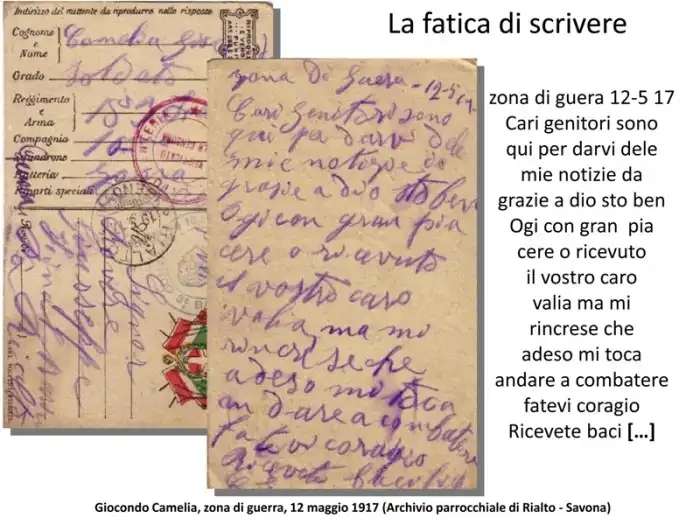 La fatica di scrivere
Indirizzo del mittente da riprodurre nelle risposte
Cognome
e
Nome
Camelia
Grado
Soldato
Reggimento
e
Arma
Compagnia
Squadrone
Batteria
Riparti speciali
zona di Guera 12-5 17
Cari genitori sono
qui per darvi dele
mie notizie da
grazie a dio sto ben
Ogi con gran pia
cere o ricevuto
il vostro caro
valia ma mi
rincrese che
adeso mi toca
andare a combatere
fatevi coragio
Ricevete
zona di guera 12-5 17
Cari genitori sono
qui per darvi dele
mie notizie da
grazie a dio sto ben
Ogi con gran pia
cere o ricevuto
il vostro caro
valia ma mi
rincrese che
adeso mi toca
andare a combatere
fatevi coragio
Ricevete baci [...]
Giocondo Camelia, zona di guerra, 12 maggio 1917 (Archivio parrocchiale di Rialto - Savona)